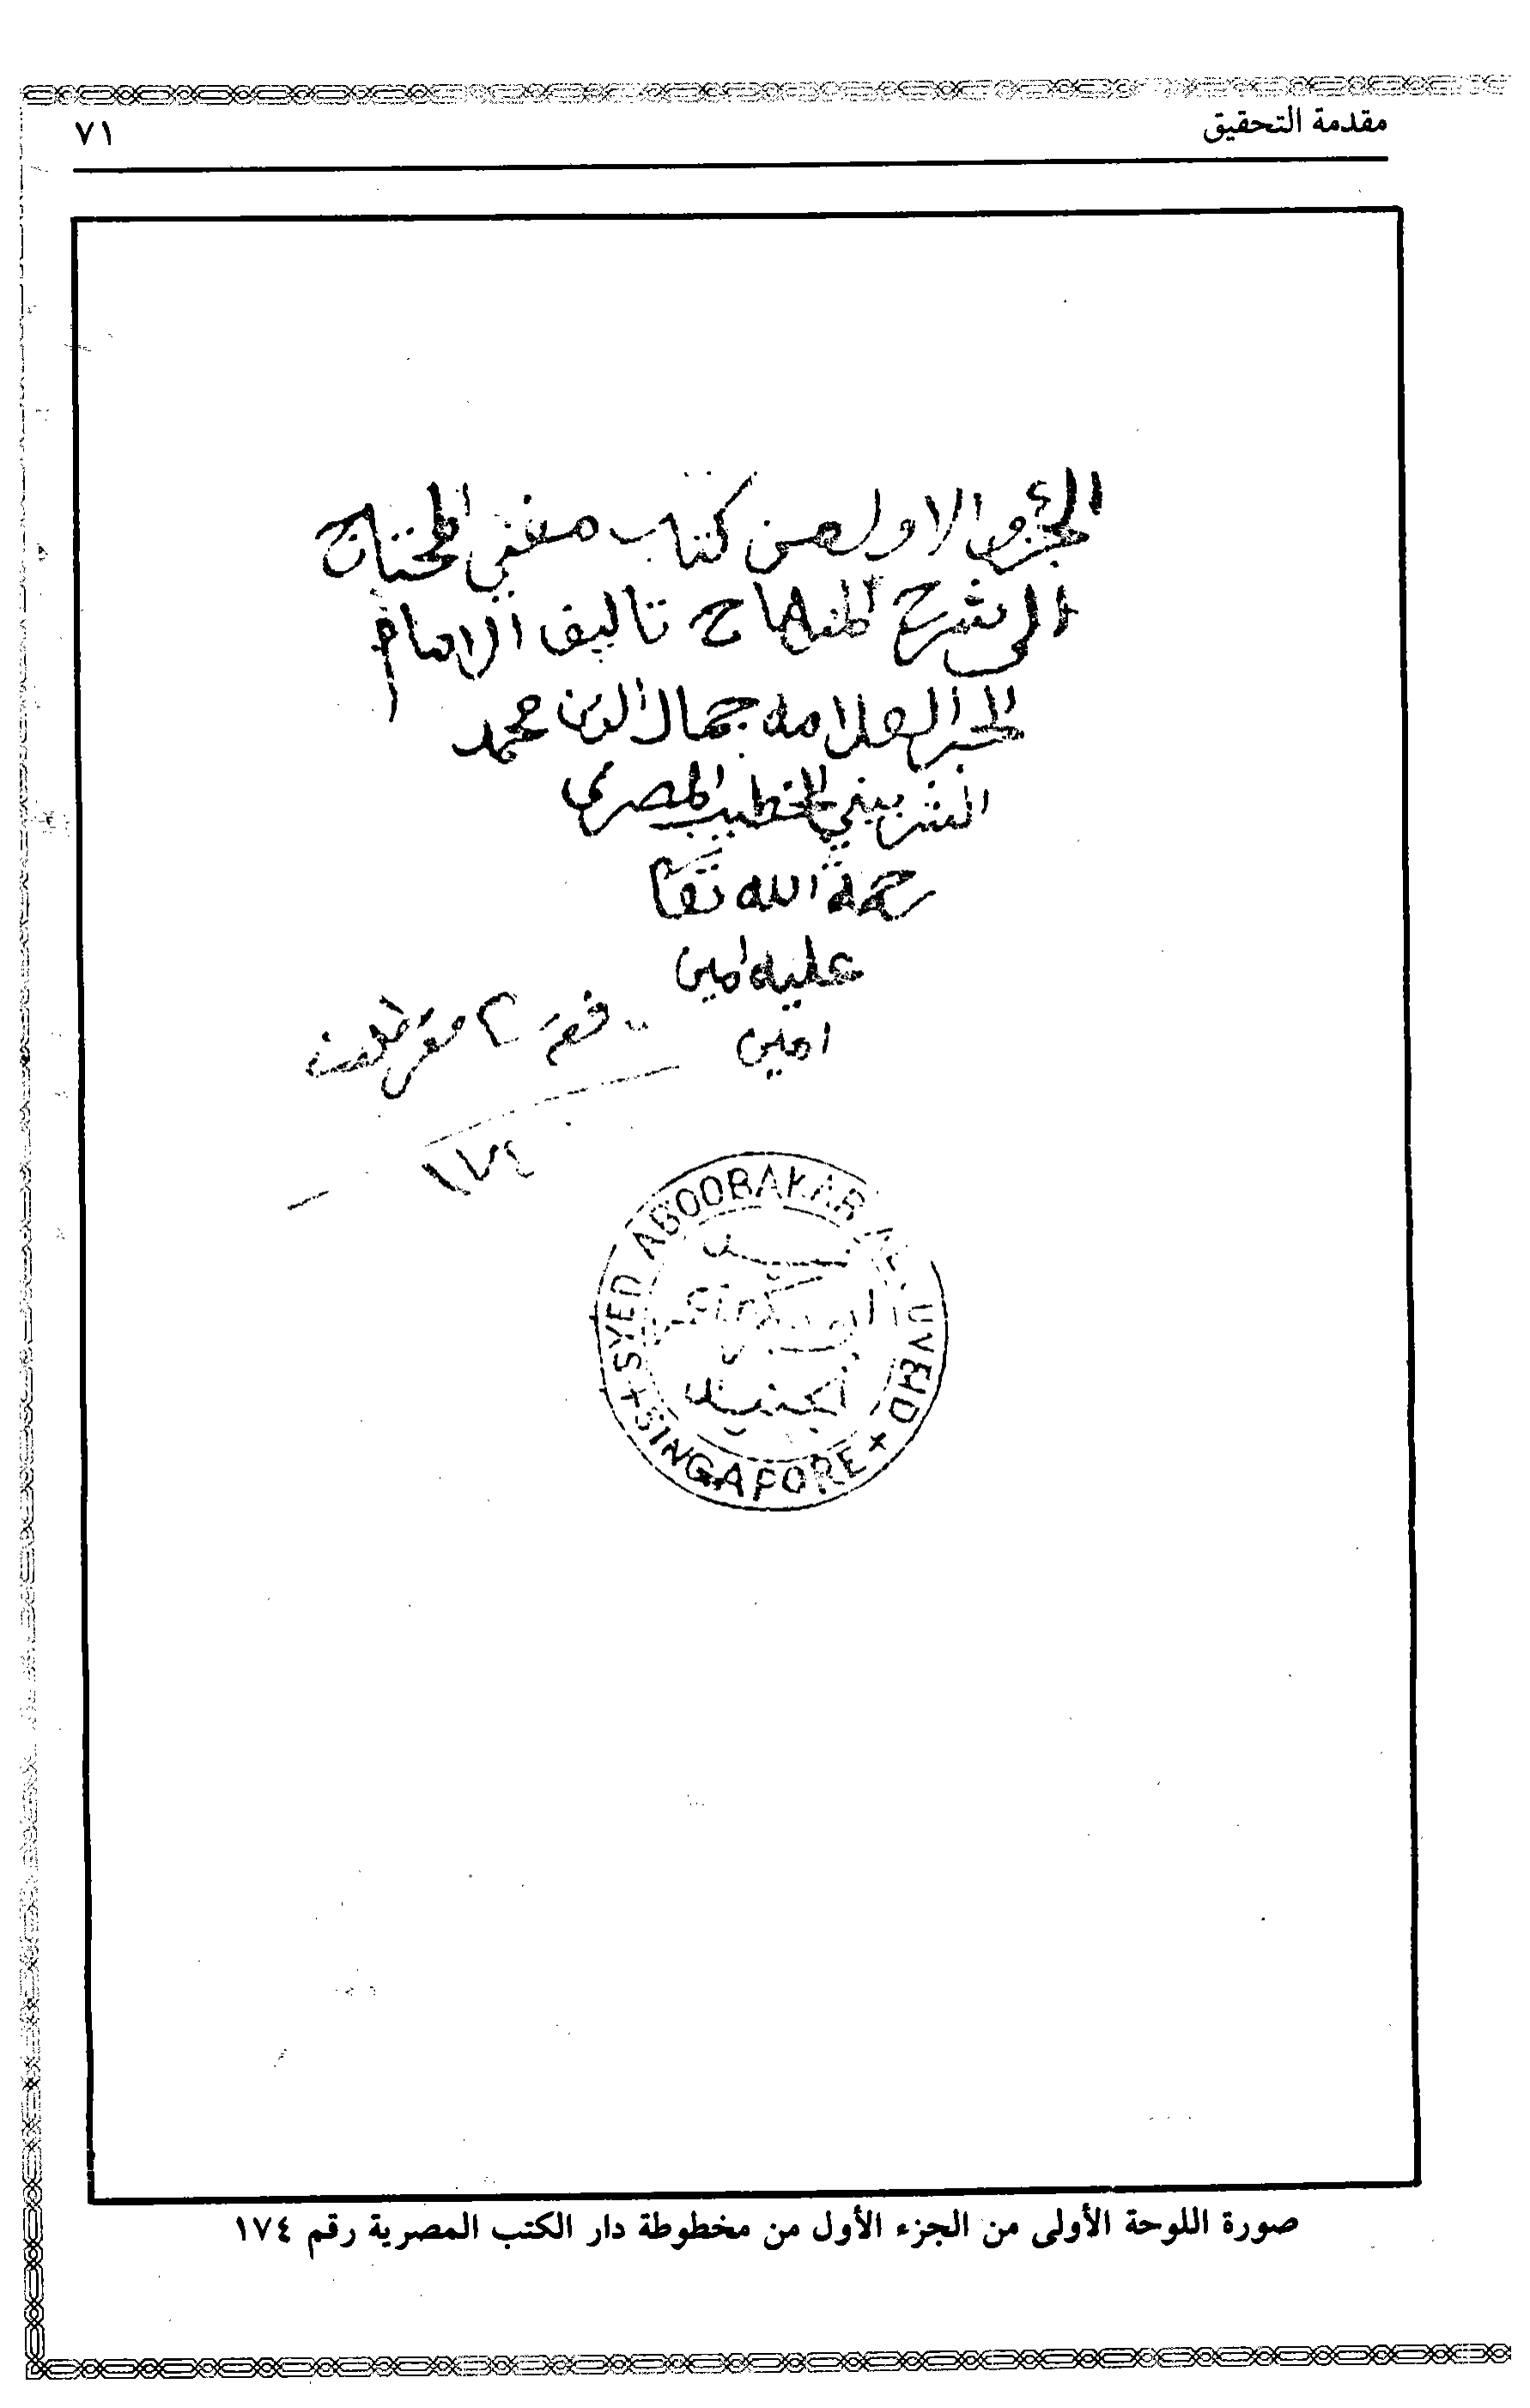 مقدمة التحقيق
٧١
الجزؤ الاول من كتاب مغني المحتاج
الى شرح المنهاج تاليف الامام
الحبر العلامه جمال الدين محمد
الشربيني الخطيب المصري
رحمة الله تعا
عليه امين
امين
فقه
١٧٤
SYED ABOOBAKAR AL
SINGAPORE
صورة اللوحة الأولى من الجزء الأول من مخطوطة دار الكتب المصرية رقم ١٧٤